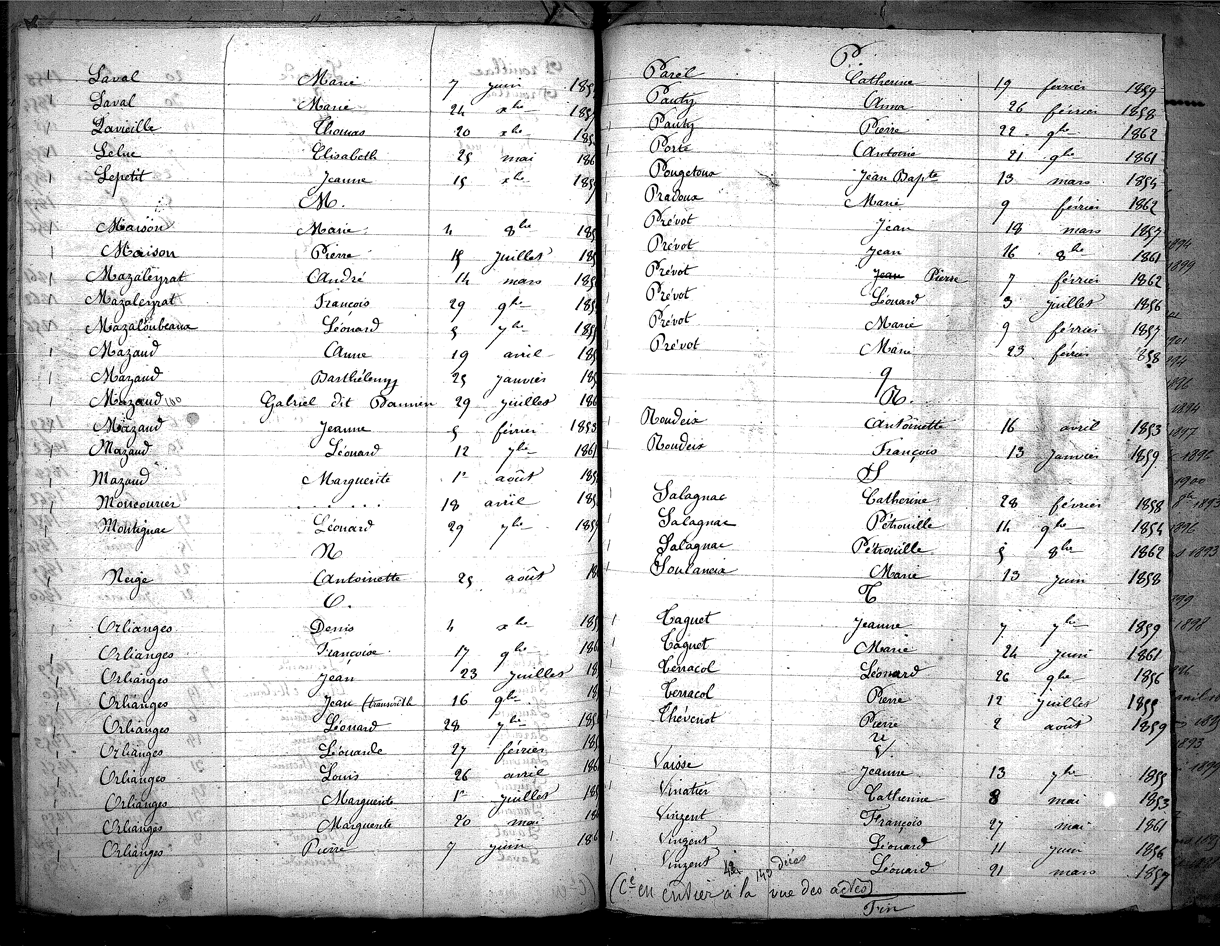 Laval Marie 7 juin 185
Laval Marie 24 xbre 185
Lavieille Thomas 20 xbre 185
Leluc Elisabeth 25 mai 186
Lepetit Jeanne 15 xbre 185
M.
Maison Marie 4 8bre 185
Maison Pierre 15 juillet 185
Mazaleyrat André 14 mars 185
Mazaleyrat François 29 9bre 185
Mazaloubeaux Léonard 5 7bre 185
Mazaud Anne 19 avril 185
Mazaud Barthélemy 25 janvier 185
Mazaud Gabriel dit Damien 29 juillet 186
Mazaud Jeanne 5 février 1853
Mazaud Léonard 12 7bre 1861
Mazaud Marguerite 1er août 185
Moncourrier . . . . . . . 18 avril 185
Montignac Léonard 29 7bre 185
N
Neige Antoinette 25 août 18
O.
Orlianges Denis 4 xbre 185
Orlianges Françoise 17 9bre 186
Orlianges Jean 23 juillet 18
Orlianges Jean (transcrit) 16 9bre 18
Orlianges Léonard 28 7bre 185
Orlianges Léonarde 27 février 185
Orlianges Louis 26 avril 186
Orlianges Marguerite 1er juillet 185
Orlianges Marguerite 20 mai 18
Orlianges Pierre 7 juin 186
P.
Parel Catherine 19 février 1859
Pauty Anna 26 février 1858
Pauty Pierre 22 9bre 1862
Porte Antoine 21 9bre 1861
Pougetoux Jean Bapte 13 mars 1854
Pradoux Marie 9 février 1862
Prévot Jean 18 mars 1857
Prévot Jean 16 8bre 1861
Prévot Jean Pierre 7 février 1862
Prévot Léonard 3 juillet 1856
Prévot Marie 9 février 1857
Prévot Marie 23 février 1858
Q
R.
Roudeix Antoinette 16 avril 1853
Roudeix François 13 janvier 1859
S
Salagnac Catherine 28 février 1858
Salagnac Pétrouille 14 9bre 1854
Salagnac Pétrouille 5 8bre 1862
Soulaneix Marie 13 juin 1858
T
Taguet Jeanne 7 7bre 1859
Taguet Marie 24 juin 1861
Terracol Léonard 26 9bre 1856
Terracol Pierre 12 juillet 1855
Thévenot Pierre 2 août 1859
U
V
Vaisse Jeanne 13 7bre 1855
Vinatier Catherine 8 mai 1853
Vinzent François 27 mai 1861
Vinzent Léonard 11 juin 1856
Vinzent Léonard 21 mars 1857
143 décès
(Cé en entier à la vue des actes)
Fin